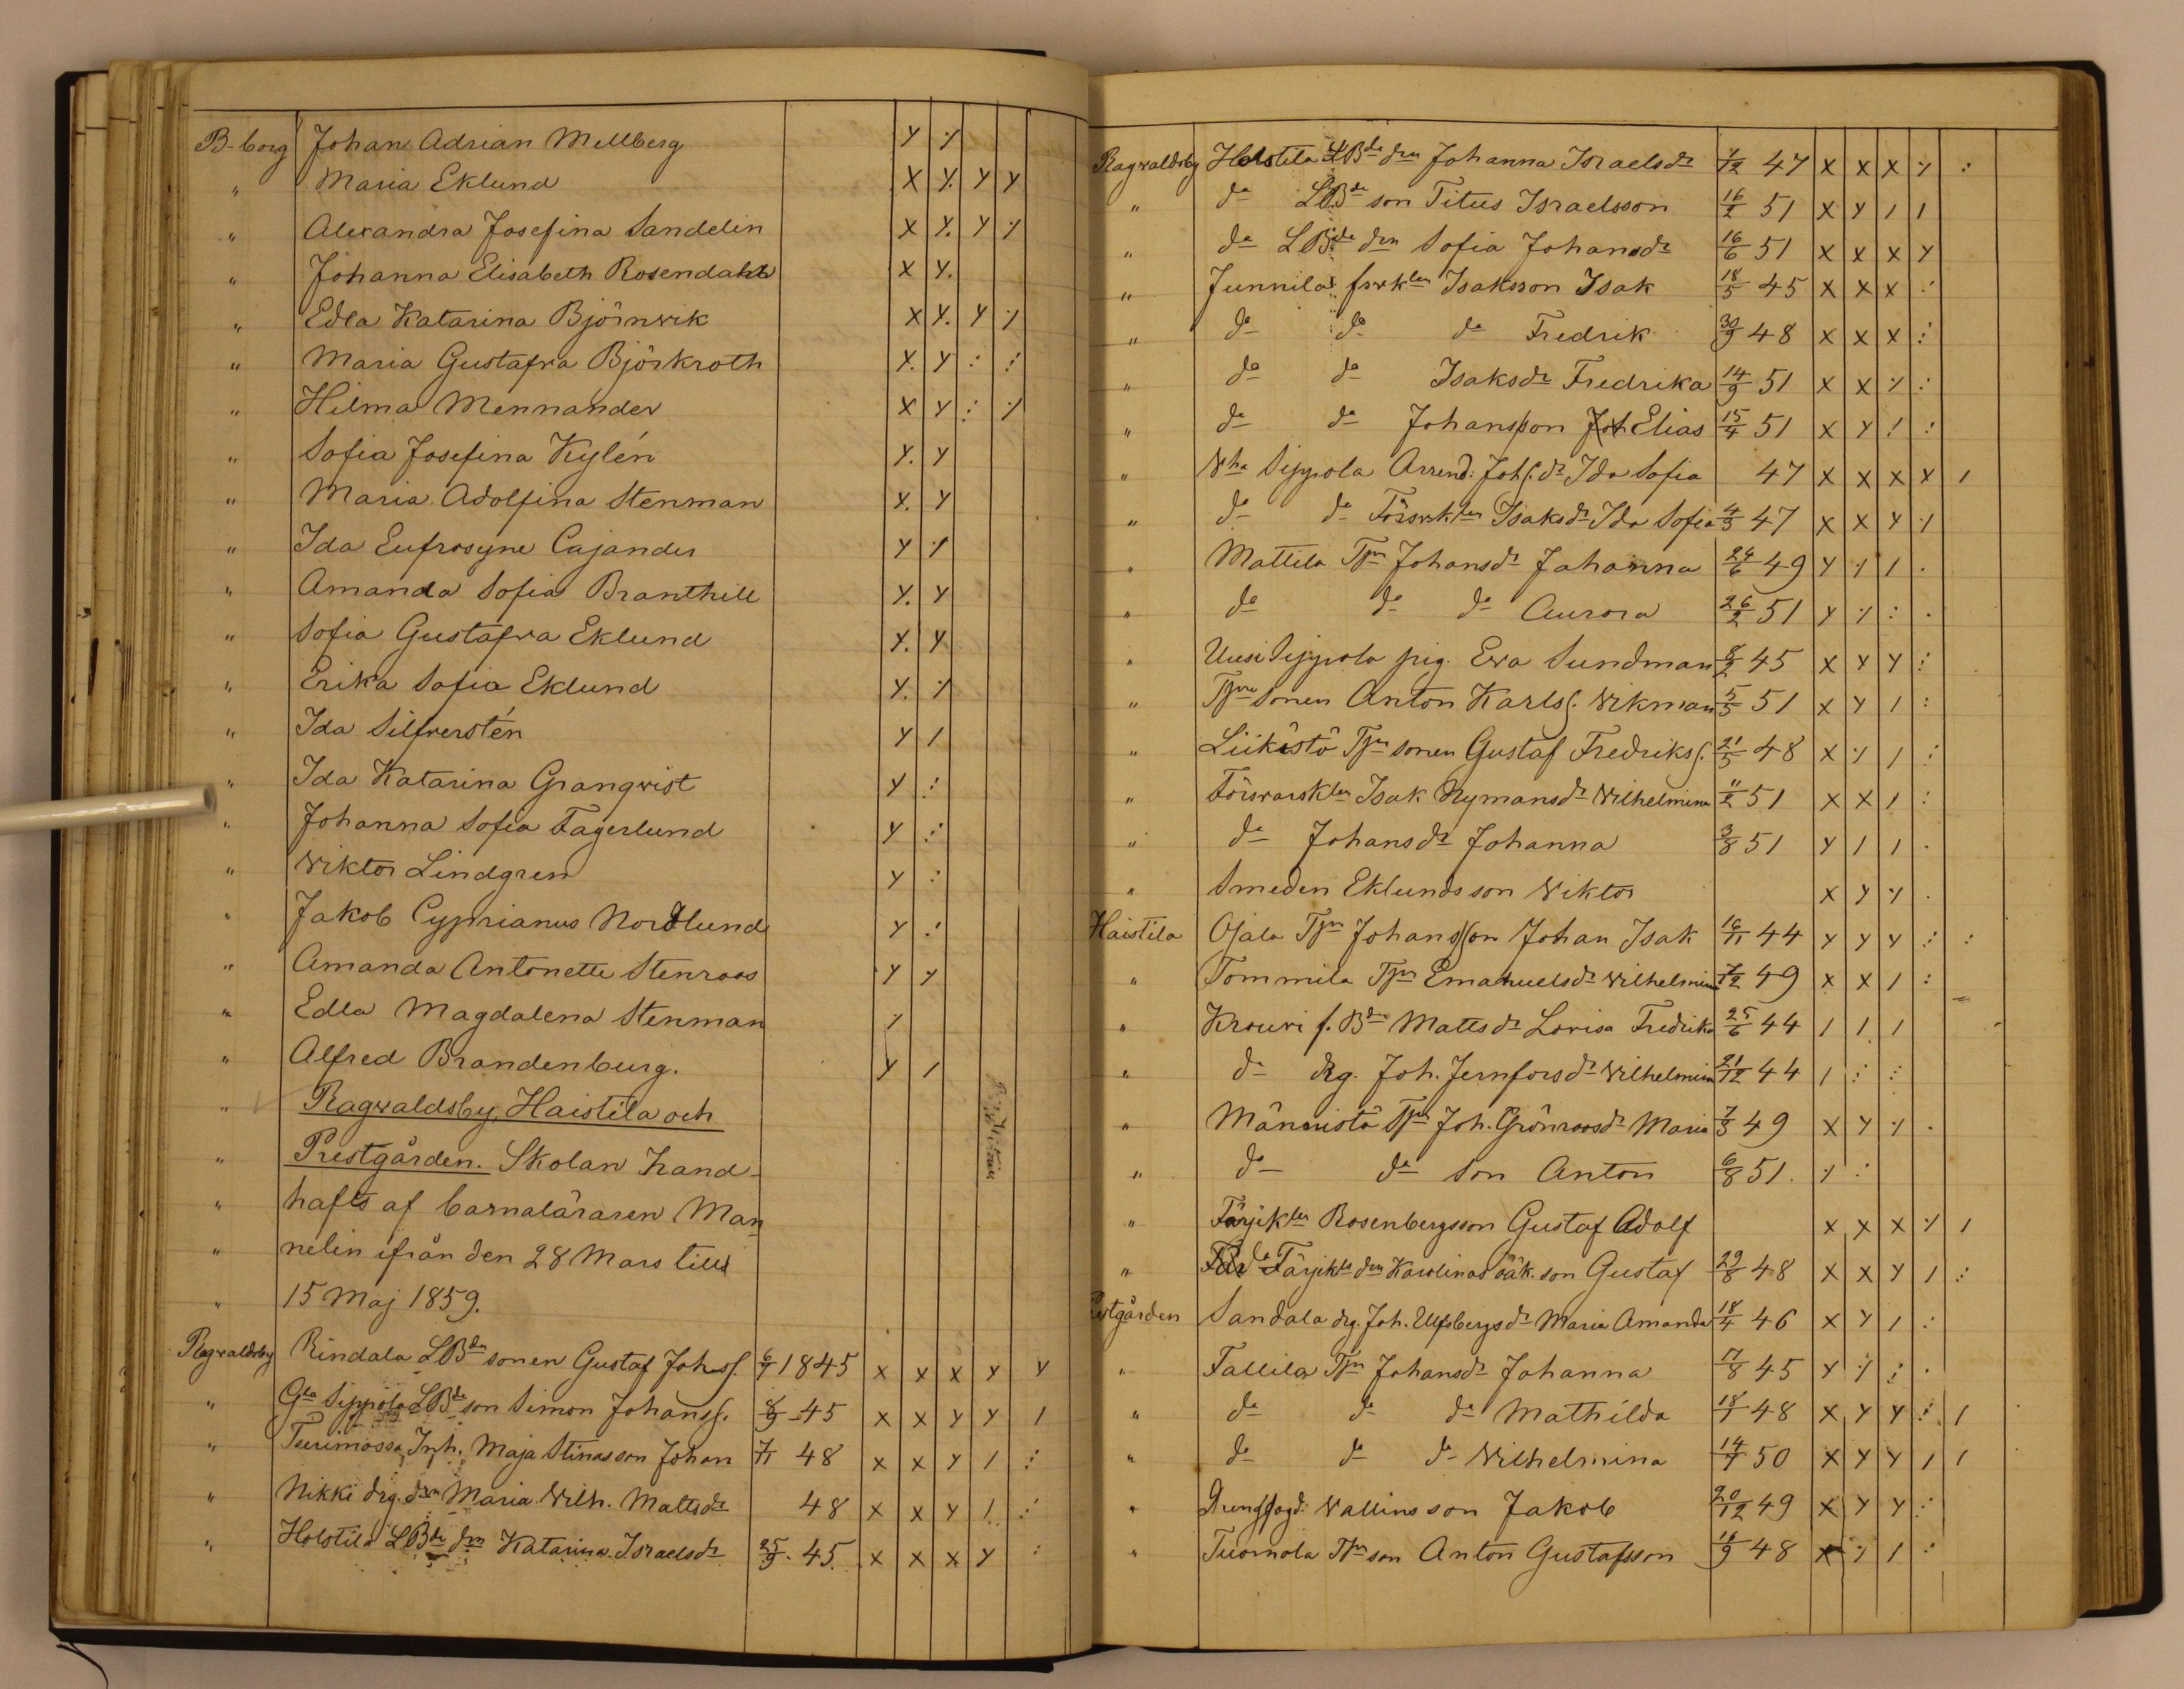 B-borg Johan Adrian Mellberg Y ٪
" Maria Eklund X Y. Y Y
" Alexandra Josefina Sandelin X Y. Y ٪
" Johanna Elisabeth Rosendahl X Y.
" Edla Katarina Björnwik X Y. Y ٪
" Maria Gustafva Björkroth Y. Y : :
" Hilma Mennander X Y : ٪
" Sofia Josefina Kylén Y. Y
" Maria Adolfina Stenman Y. Y
" Ida Eufrosyne Cajander Y ٪
" Amanda Sofia Branthill Y. Y
" Sofia Gustafva Eklund Y. Y
" Erika Sofia Eklund Y. ٪
" Ida Silfverstén Y /
" Ida Katarina Granqvist Y :
" Johanna Sofia Fagerlund Y :
" Wiktor Lindgren Y :
" Jakob Cyprianus Nordlund Y :
" Amanda Antonette Stenroos Y Y
" Edla Magdalena Stenman /
" Alfred Brandenburg. Y /
" Ragvaldsby, Haistila och
" Prestgården. Skolan hand-
" hafts af barnaläraren Man
" nelin ifrån den 28 Mars till
" 15 Maj 1859.
Ragvaldsby Rindala LBdn sonen Gustaf Johans. 1845 X X X Y Y
" Gla Sippola LBde son Simon Johanss. 8/9 45 X X Y Y /
" Inh. Maja Stinas son Johan 7/11 48 X X Y / :
" Nikki drg. drn Maria Wilh. Mattsdr 48 X X Y / :
" Holstila LBde drn Katarina Israelsdr 25/9. 45. X X X Y :
Ragvaldsby Holstila LBde drn Johanna Israelsdr 1/12 47 X X X ٪ :
" do LBde son Titus Israelsson 16/2 51 X Y / /
" do LBde drn Sofia Johansdr 16/6 51 X X X Y
" Junnila försvkln Isaksson Isak 18/5 45 X X X :
" do do do Fredrik 30/9 48 X X X :
" do do Isaksdr Fredrika 14/9 51 X X ٪ :
" do do Johansson Elias 15/4 51 X Y / :
" Wha Sippola Arrend: Johs. dr Ida Sofia 47 X X X X /
" do do Försvkln Isaksdr Ida Sofia 4/3 47 X X Y ٪
" Mattila Tpr Johansdr Johanna 24/6 49 Y ٪ / .
" do do do Aurora 26/2 51 Y ٪ : .
" Uusi Sippola pig. Eva Sundman 8/2 45 X Y Y :
" Tpr sonen Anton Karlss. Wikman 5/5 51 X Y / :
" Liikistö Tpr sonen Gustaf Fredrikss. 21/5 48 X ٪ / :
" Försvarskln Isak Nymansdr Wilhelmina 11/2 51 X X / :
" do Johansdr Johanna 3/8 51 Y / / .
" Smeden Eklunds son Wiktor X Y Y .
Haistila Ojala Tpr Johansson Johan Isak 16/11 44 Y Y Y : :
" Tommila Tpr Emanuelsdr Wilhelmina 7/12 49 X X / :
" Krouvi f. Bdn Mattsdr Lovisa Fredrika 25/6 44 / / /
" do drg. Joh. Jernforsdr Wilhelmina 21/12 44 / : :
" Männistö Tpr Joh. Grönroosdr Maria 7/3 49 X Y ٪ .
" do do son Anton 6/8 51. ٪ :
" Färjkln Rosenbergsson Gustaf Adolf X X X ٪ /
" Färjkls drn Karolinas oäk. son Gustaf 29/8 48 X X Y / :
Prestgården Sandala drg. Joh. Ulfsbergsdr Maria Amanda 18/4 46 X Y / :
" Tallila Tpr Johansdr Johanna 17/8 45 Y ٪ : .
" do do do Mathilda 18/1 48 X Y Y : /
" do do do Wilhelmina 14/4 50 X Y Y / /
" Wallins son Jakob 20/12 49 X Y Y :
" Tuomola Tpr son Anton Gustafsson 16/9 48 X ٪ / :